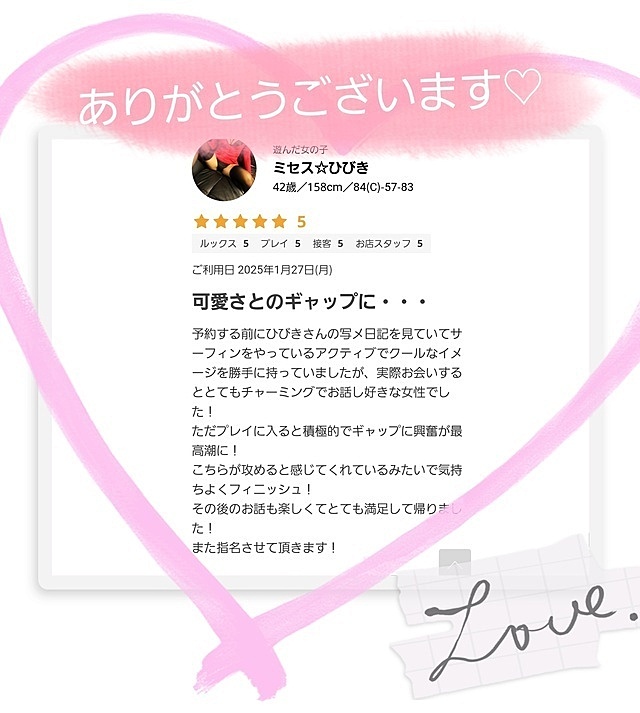 ありがとうございます♡
遊んだ女の子
ミセス☆ひびき
42歳／158cm／84(C)-57-83
★★★★★ 5
ルックス 5 プレイ 5 接客 5 お店スタッフ 5
ご利用日 2025年1月27日(月)
可愛さとのギャップに・・・
予約する前にひびきさんの写メ日記を見ていてサ
ーフィンをやっているアクティブでクールなイメ
ージを勝手に持っていましたが、実際お会いする
ととてもチャーミングでお話し好きな女性でし
た！
ただプレイに入ると積極的でギャップに興奮が最
高潮に！
こちらが攻めると感じてくれているみたいで気持
ちよくフィニッシュ！
その後のお話も楽しくてとても満足して帰りまし
た！
また指名させて頂きます！
Love.